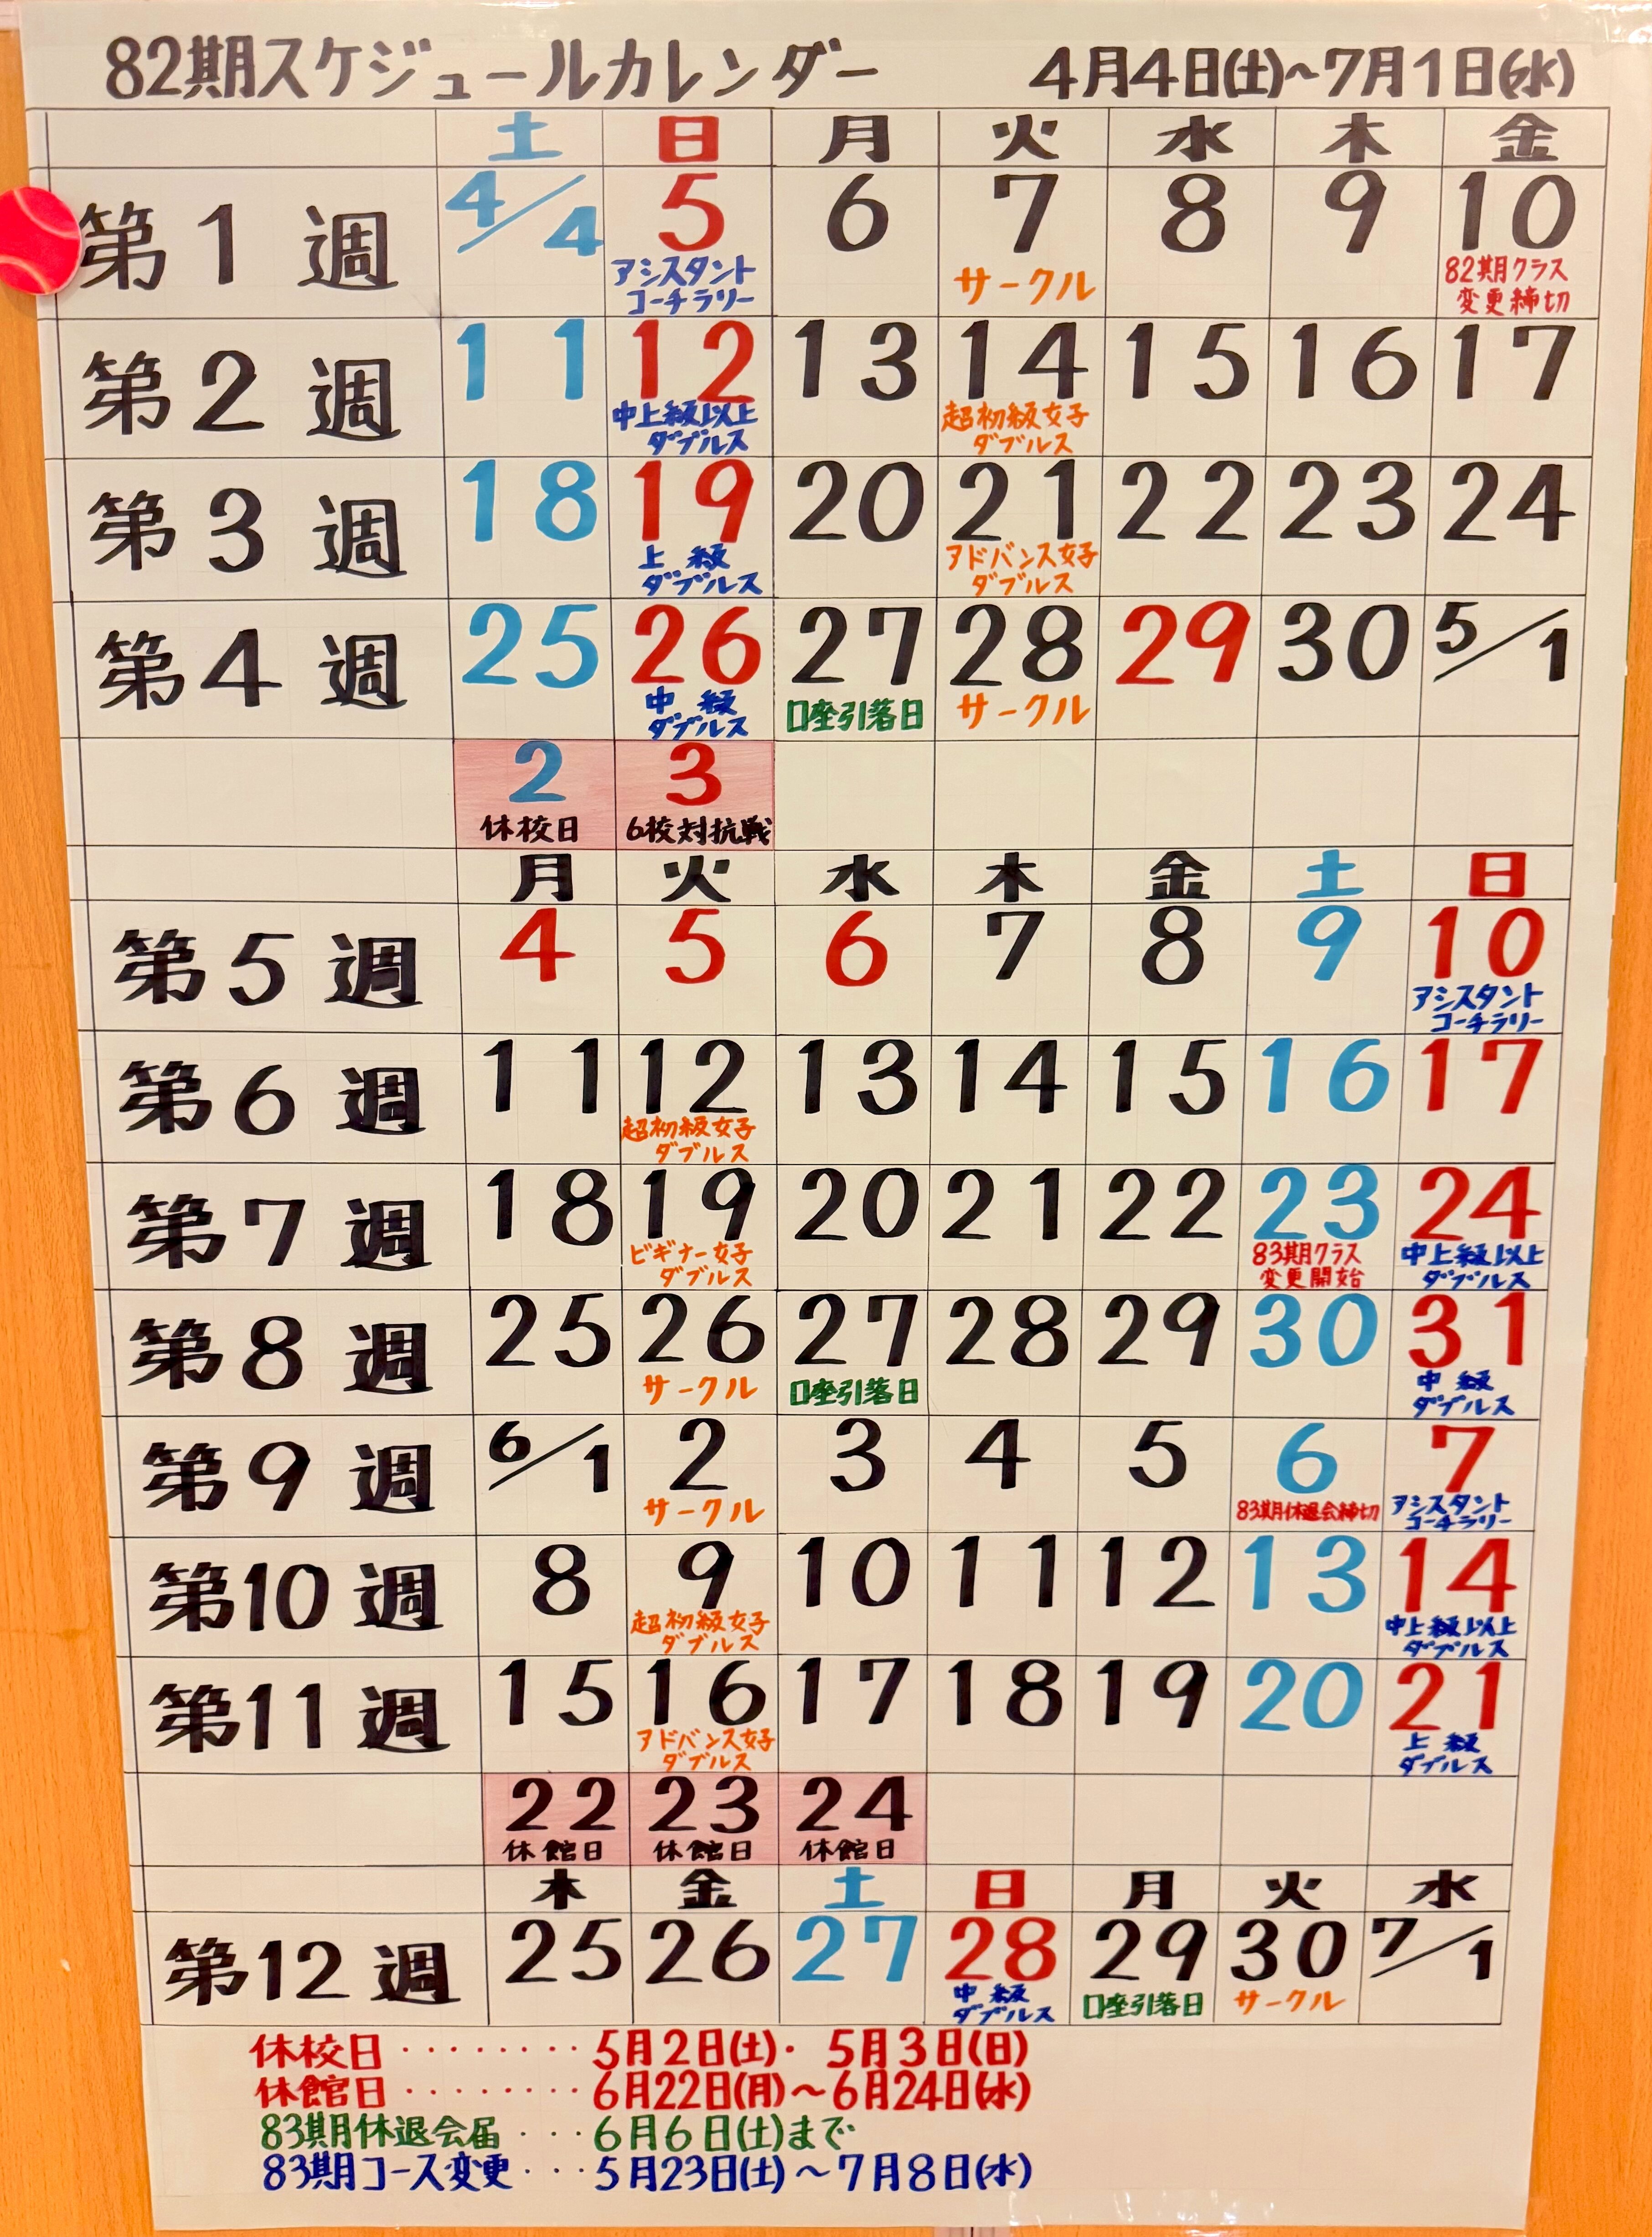 82期スケジュールカレンダー 4月4日(土)~7月1日(水)
土 日 月 火 水 木 金
第1週 4/4 5 6 7 8 9 10
アシスタント サークル 82期クラス
コーチラリー 変更締切
第2週 11 12 13 14 15 16 17
中上級以上 超初級女子
ダブルス ダブルス
第3週 18 19 20 21 22 23 24
上級 アドバンス女子
ダブルス ダブルス
第4週 25 26 27 28 29 30 5/1
中級 口座引落日 サークル
ダブルス
2 3
休校日 6校対抗戦
月 火 水 木 金 土 日
第5週 4 5 6 7 8 9 10
アシスタント
コーチラリー
第6週 11 12 13 14 15 16 17
超初級女子
ダブルス
第7週 18 19 20 21 22 23 24
ビギナー女子 83期クラス 中上級以上
ダブルス 変更開始 ダブルス
第8週 25 26 27 28 29 30 31
サークル 口座引落日 中級
ダブルス
第9週 6/1 2 3 4 5 6 7
サークル 83期休退会締切 アシスタント
コーチラリー
第10週 8 9 10 11 12 13 14
超初級女子 中上級以上
ダブルス ダブルス
第11週 15 16 17 18 19 20 21
アドバンス女子 上級
ダブルス ダブルス
22 23 24
休館日 休館日 休館日
木 金 土 日 月 火 水
第12週 25 26 27 28 29 30 7/1
中級 口座引落日 サークル
ダブルス
休校日········5月2日(土)・5月3日(日)
休館日········6月22日(月)~6月24日(水)
83期休退会届···6月6日(土)まで
83期コース変更···5月23日(土)~7月8日(水)